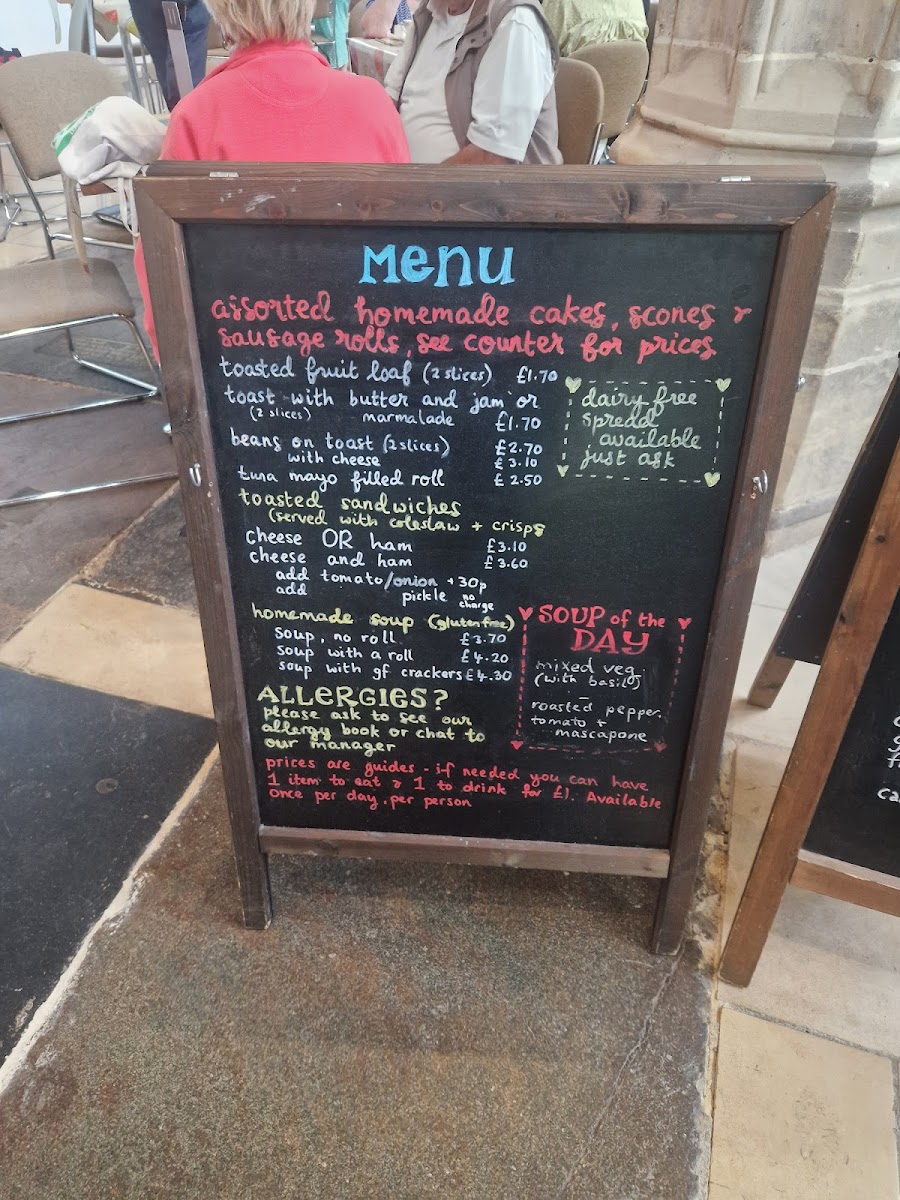 Menu
assorted homemade cakes, scones &
sausage rolls, see counter for prices
toasted fruit loaf (2 slices) £1.70
toast with butter and jam or
(2 slices) marmalade £1.70
beans on toast (2 slices) £2.70
with cheese £3.10
tuna mayo filled roll £2.50
dairy free
spread
available
just ask
toasted sandwiches
(served with coleslaw + crisps
cheese OR ham £3.10
cheese and ham £3.60
add tomato/onion +30p
add pickle no
charge
homemade soup (gluten free)
soup, no roll £3.70
soup with a roll £4.20
soup with gf crackers £4.30
SOUP of the
DAY
mixed veg.
(with basil)
–
roasted pepper,
tomato +
mascapone
ALLERGIES?
please ask to see our
allergy book or chat to
our manager
prices are guides - if needed you can have
1 item to eat & 1 to drink for £1. Available
once per day, per person